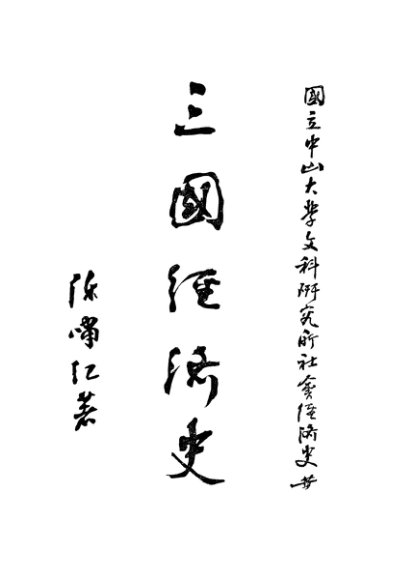 國立中山大學文科研究所社會經濟史
三國經濟史
陳嘯江著